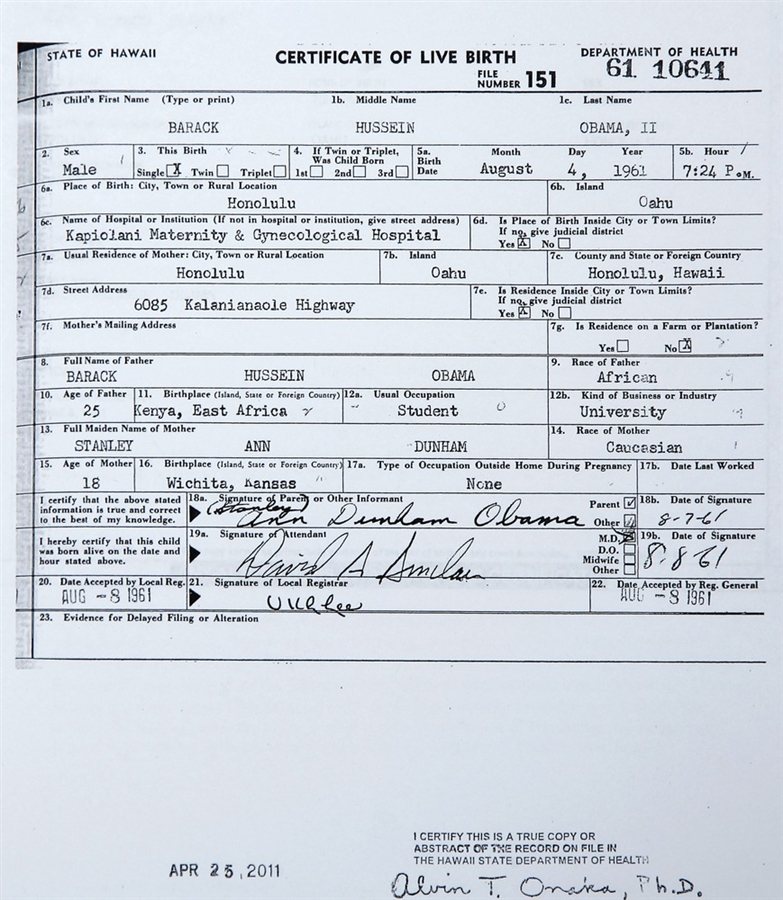 STATE OF HAWAII CERTIFICATE OF LIVE BIRTH DEPARTMENT OF HEALTH
FILE NUMBER 151 61 10641
1a. Child's First Name (Type or print) 1b. Middle Name 1c. Last Name
BARACK HUSSEIN OBAMA, II
2. Sex 3. This Birth 4. If Twin or Triplet, Was Child Born 5a. Birth Date Month Day Year 5b. Hour
Male Single X Twin Triplet 1st 2nd 3rd August 4, 1961 7:24 P.M.
6a. Place of Birth: City, Town or Rural Location 6b. Island
Honolulu Oahu
6c. Name of Hospital or Institution (If not in hospital or institution, give street address) 6d. Is Place of Birth Inside City or Town Limits?
If no, give judicial district
Kapiolani Maternity & Gynecological Hospital Yes X No
7a. Usual Residence of Mother: City, Town or Rural Location 7b. Island 7c. County and State or Foreign Country
Honolulu Oahu Honolulu, Hawaii
7d. Street Address 7e. Is Residence Inside City or Town Limits?
If no, give judicial district
6085 Kalanianaole Highway Yes X No
7f. Mother's Mailing Address 7g. Is Residence on a Farm or Plantation?
Yes No X
8. Full Name of Father 9. Race of Father
BARACK HUSSEIN OBAMA African
10. Age of Father 11. Birthplace (Island, State or Foreign Country) 12a. Usual Occupation 12b. Kind of Business or Industry
25 Kenya, East Africa Student University
13. Full Maiden Name of Mother 14. Race of Mother
STANLEY ANN DUNHAM Caucasian
15. Age of Mother 16. Birthplace (Island, State or Foreign Country) 17a. Type of Occupation Outside Home During Pregnancy 17b. Date Last Worked
18 Wichita, Kansas None
I certify that the above stated information is true and correct to the best of my knowledge. 18a. Signature of Parent or Other Informant Parent Other 18b. Date of Signature
(Stanley) Ann Dunham Obama 8-7-61
I hereby certify that this child was born alive on the date and hour stated above. 19a. Signature of Attendant M.D. D.O. Midwife Other 19b. Date of Signature
David A Sinclair 8-8-61
20. Date Accepted by Local Reg. 21. Signature of Local Registrar 22. Date Accepted by Reg. General
AUG -8 1961 AUG -8 1961
23. Evidence for Delayed Filing or Alteration
I CERTIFY THIS IS A TRUE COPY OR
ABSTRACT OF THE RECORD ON FILE IN
THE HAWAII STATE DEPARTMENT OF HEALTH
APR 25, 2011
Alvin T. Onaka, Ph.D.